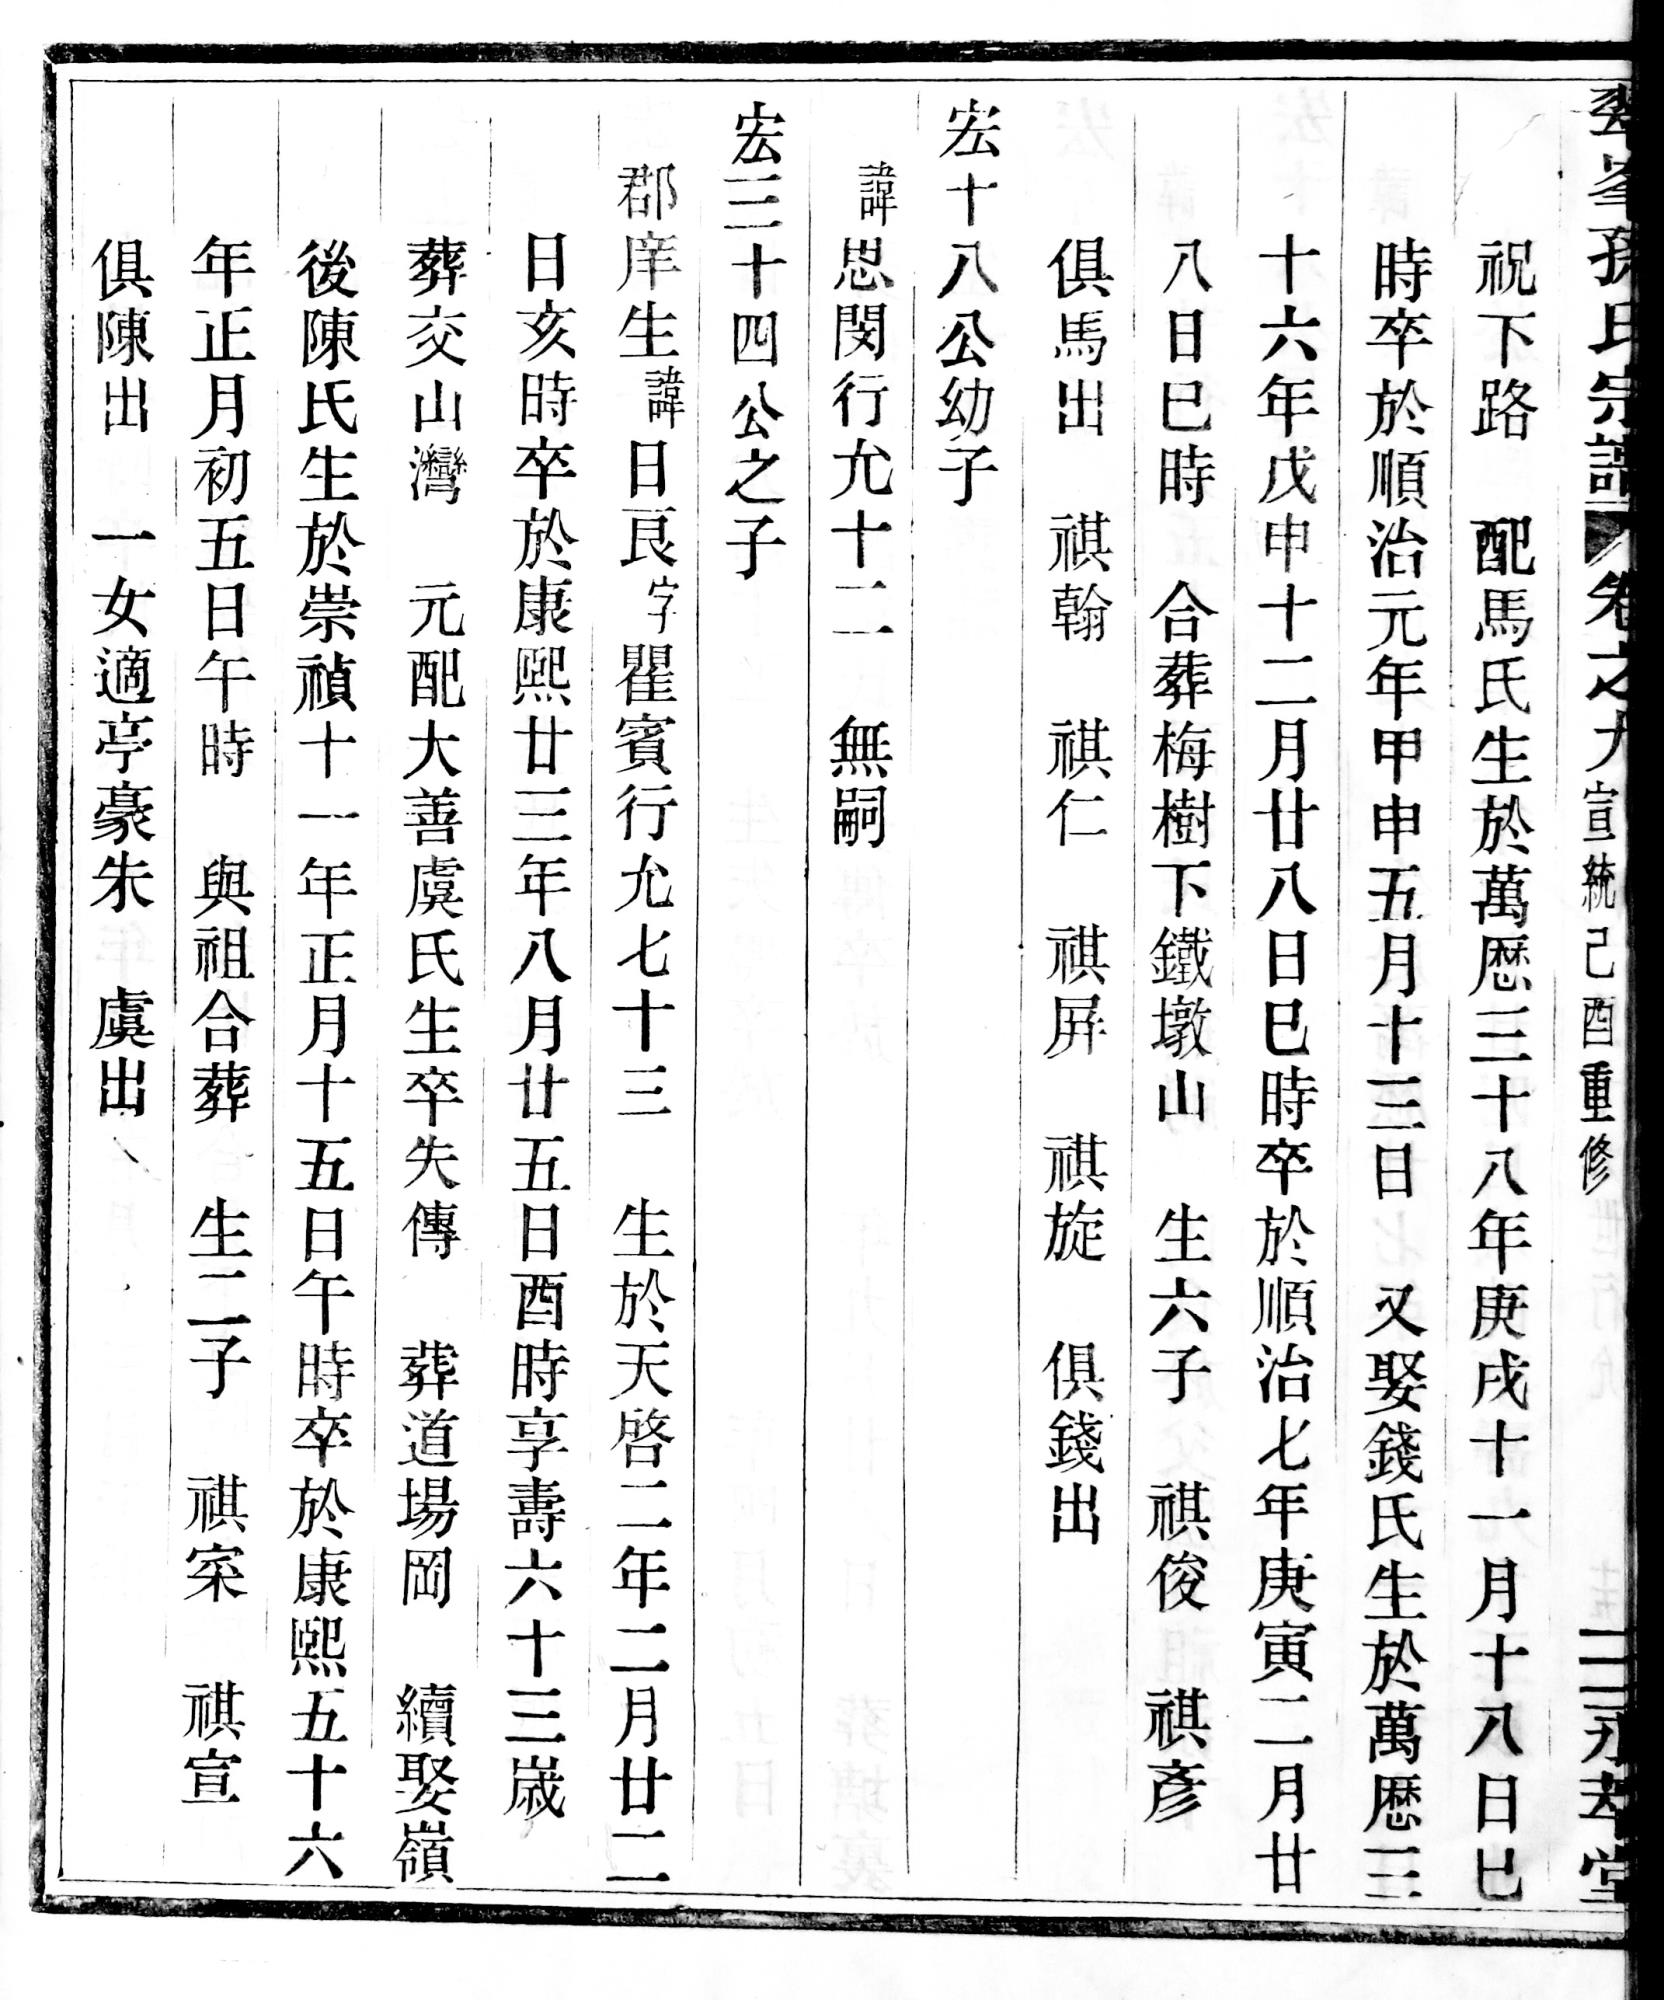 翠峯孫氏宗譜 卷之九 宣統己酉重修 二 永孝堂
祝下路 配馬氏生於萬歷三十八年庚戌十一月十八日巳
時卒於順治元年甲申五月十三日 又娶錢氏生於萬歷三
十六年戊申十二月廿八日巳時卒於順治七年庚寅二月廿
八日巳時 合葬梅樹下鐵墩山 生六子 祺俊 祺彥
俱馬出 祺翰 祺仁 祺屏 祺旋 俱錢出
宏十八公幼子
諱思閔行允十二 無嗣
宏三十四公之子
郡庠生諱日艮字瞿賓行允七十三 生於天啓二年二月廿二
日亥時卒於康熙廿三年八月廿五日酉時享壽六十三歲
葬交山灣 元配大善虞氏生卒失傳 葬道場岡 續娶嶺
後陳氏生於崇禎十一年正月十五日午時卒於康熙五十六
年正月初五日午時 與祖合葬 生二子 祺寀 祺宣
俱陳出 一女適亭豪朱 虞出